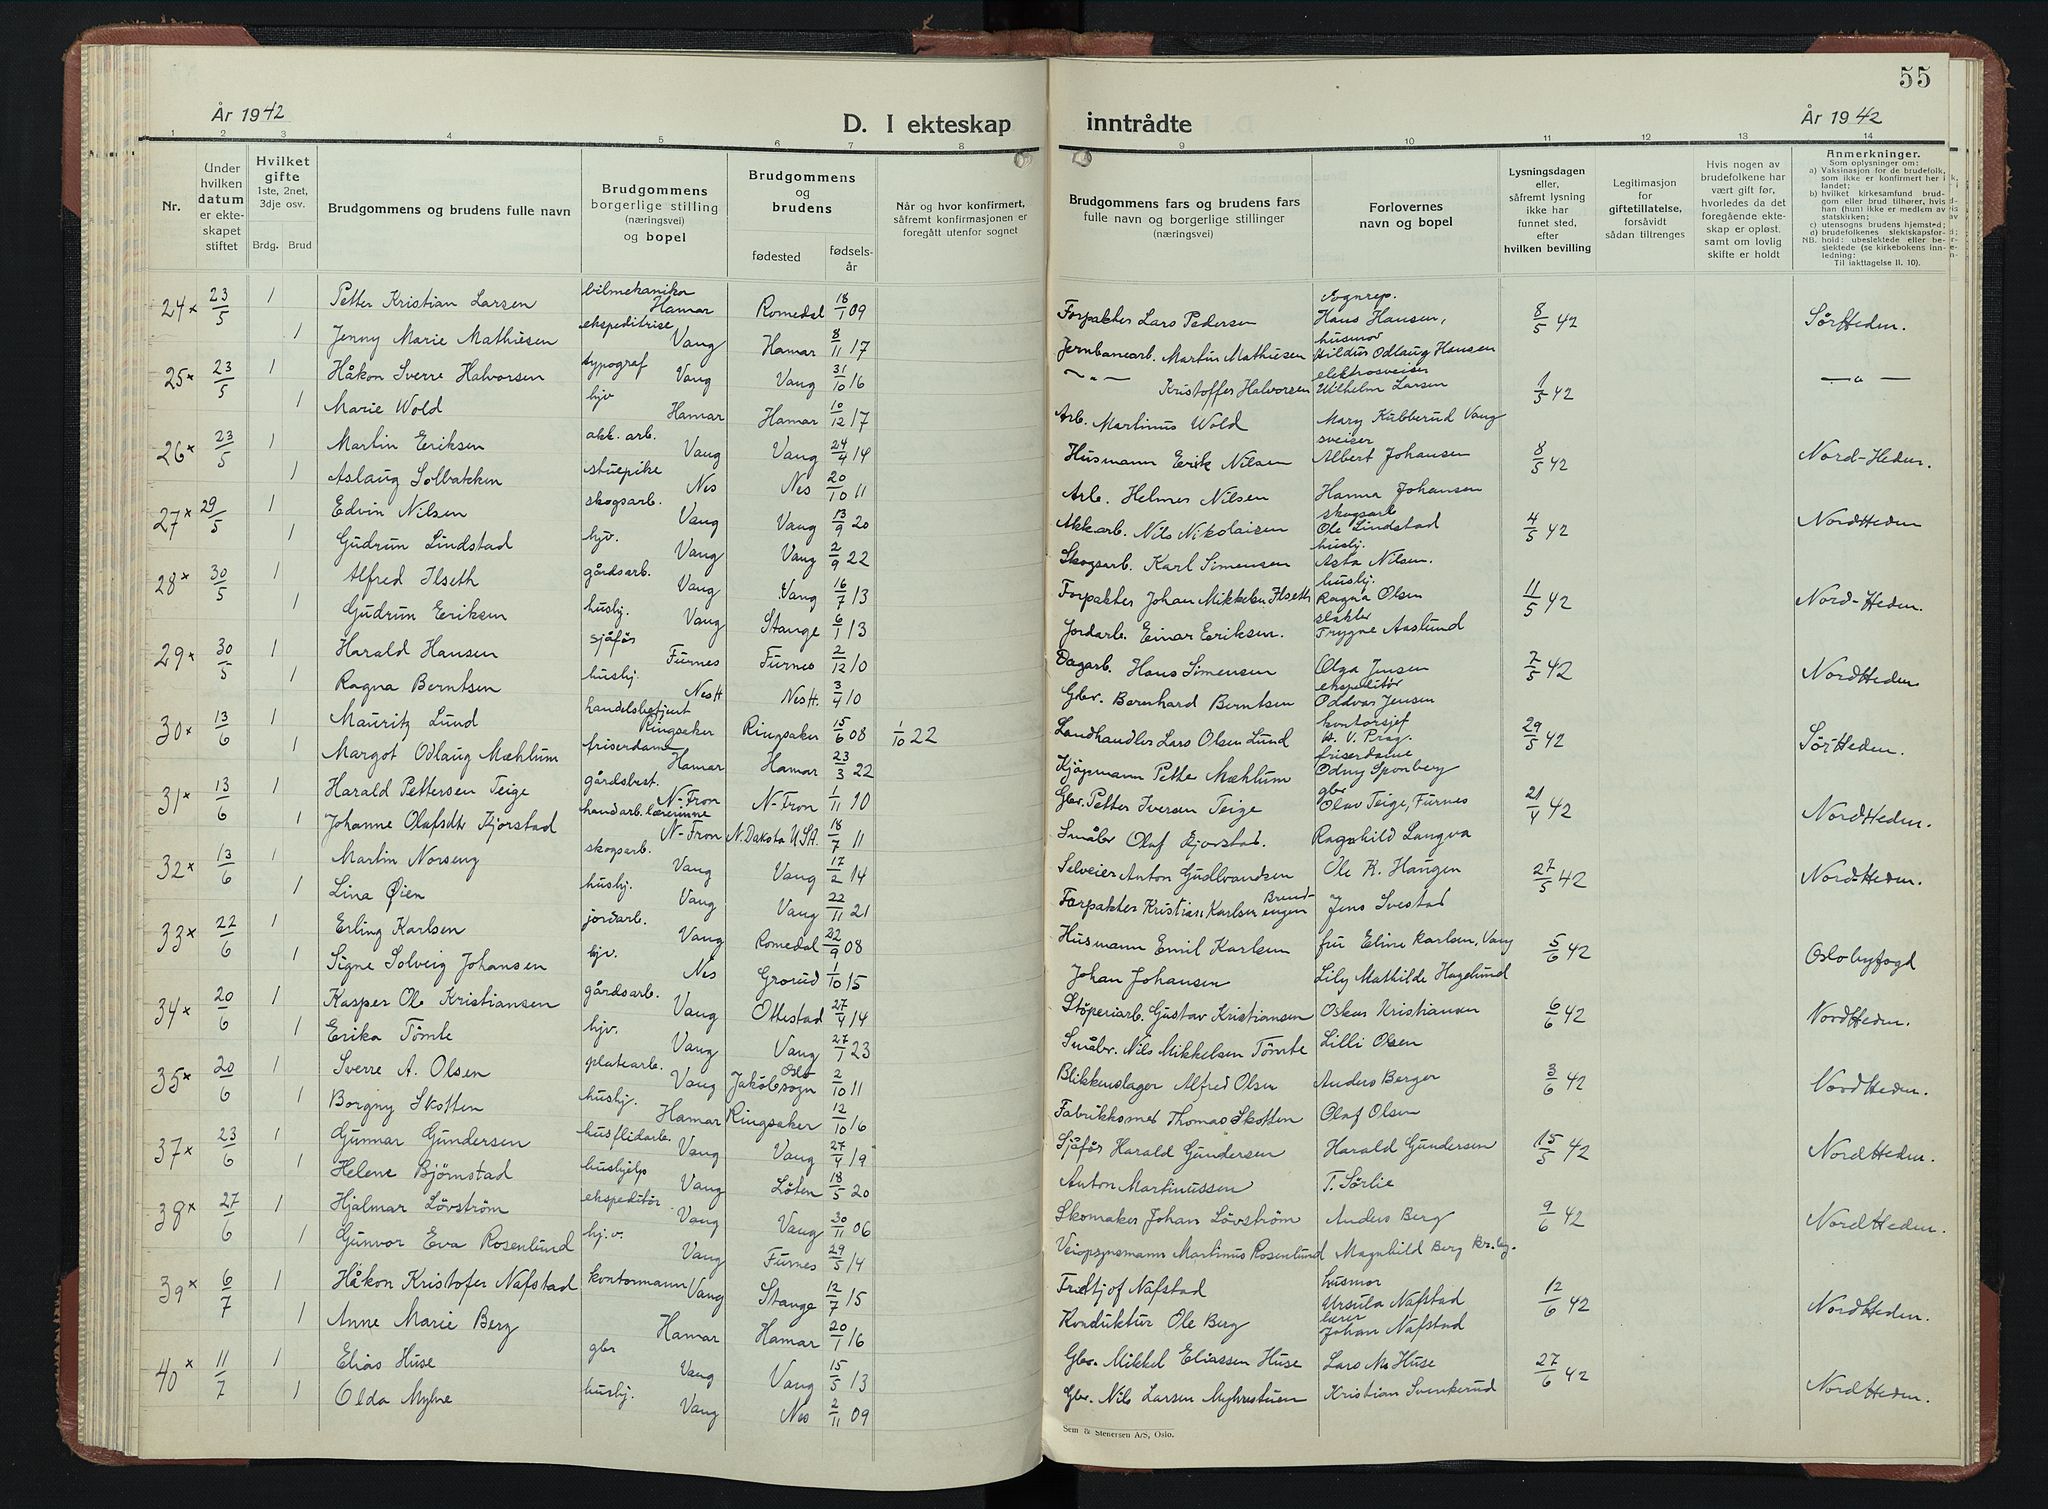 55
År 1942
D. I ekteskap inntrådte
År 1942
1 2 3 4 5 6 7 8 9 10 11 12 13 14
Nr.
Under hvilken datum er ekteskapet stiftet
Hvilket gifte
1ste, 2net, 3dje osv.
Brdg. Brud
Brudgommens og brudens fulle navn
Brudgommens borgerlige stilling (næringsvei) og bopel
Brudgommens og brudens
fødested
fødselsår
Når og hvor konfirmert, såfremt konfirmasjonen er foregått utenfor sognet
Brudgommens fars og brudens fars fulle navn og borgerlige stillinger (næringsvei)
Forlovernes navn og bopel
Lysningsdagen eller, såfremt lysning ikke har funnet sted, efter hvilken bevilling
Legitimasjon for giftetillatelse, forsåvidt sådan tiltrenges
Hvis nogen av brudefolkene har vært gift før, hvorledes da det foregående ekteskap er opløst, samt om lovlig skifte er holdt
Anmerkninger.
Som oplysninger om:
a) Vaksinasjon for de brudefolk, som ikke er konfirmert her i landet;
b) hvilket kirkesamfund brudgom eller brud tilhører, hvis han (hun) ikke er medlem av statskirken;
c) utensogns brudens hjemsted;
d) brudefolkenes slektskapsforhold: ubeslektede eller beslektede (se kirkebokens innledning:
NB.
Til iakttagelse II. 10).
24 x 23/5 1 Petter Kristian Larsen bilmekaniker Hamar Romedal 18/1 09 Forpakter Lars Pedersen Sognrep. Hans Hansen, 8/5 42 SørHeden.
1 Jenny Marie Mathiesen ekspeditrise Vang Hamar 8/11 17 Jernbanearb. Martin Mathiesen husmor Hildur Odlaug Hansen
25 x 23/5 1 Håkon Sverre Halvorsen typograf Vang Vang 31/10 16 — " — Kristoffer Halvorsen elektrosveiser Wilhelm Larsen 1/5 42 — " —
1 Marie Wold hjv Hamar Hamar 10/12 17 Arb. Martinus Wold Mary Kubberud Vang
26 x 23/5 1 Martin Eriksen akk. arb. Vang Vang 24/4 14 Husmann Erik Nilsen sveiser Albert Johansen 8/5 42 Nord-Heden.
1 Aslaug Solbakken stuepike Nes Nes 20/10 11 Arb. Helmer Nilsen Hanna Johansen
27 x 29/5 1 Edvin Nilsen skogsarb. Vang Vang 13/9 20 Akkarb. Nils Nikolaisen skogsarb Ole Lindstad 4/5 42 NordHeden
1 Gudrun Lindstad hjv. Vang Vang 2/9 22 Skogsarb. Karl Simensen hushj. Asta Nilsen.
28 x 30/5 1 Alfred Ilseth gårdsarb. Vang Vang 16/7 13 Forpakter Johan Mikkelsen Ilseth hushj. Ragna Olsen 11/5 42 Nord-Heden.
1 Gudrun Eriksen hushj. Vang Stange 6/1 13 Jordarb. Einar Eriksen. slakter Trygve Aaslund
29 x 30/5 1 Harald Hansen sjåfør Furnes Furnes 2/12 10 Dagarb. Hans Simensen Olga Jensen 7/5 42 NordHeden
1 Ragna Berntsen hushj. Nes H Nes H. 3/4 10 Gbr. Bernhard Berntsen ekspeditør Oddvar Jensen
30 x 13/6 1 Mauritz Lund handelsbetjent Ringsaker Ringsaker 15/6 08 1/10 22 Landhandler Lars Olsen Lund kontorsjef H. V. Prag. 29/5 42 Sør Heden.
1 Margot Odlaug Mæhlum friserdame Hamar Hamar 23/3 22 Kjøpmann Petter Mæhlum friserdame Odny Sponberg
31 x 13/6 1 Harald Pettersen Teige gårdsbest. N-Fron N-Fron 1/11 10 Gbr. Petter Iversen Teige gbr Olav Teige, Furnes 21/4 42 NordHeden.
1 Johanne Olafsdtr Kjorstad handarb. lærerinne N-Fron N. Dakota USA. 18/7 11 Småbr Olaf Kjorstad. Ragnhild Langva
32 x 13/6 1 Martin Norseng skogsarb. Vang Vang 17/2 14 Selveier Anton Gudbrandsen Ole K. Haugen 27/5 42 Nord-Heden.
1 Lina Øien hushj. Vang Vang 22/11 21 Forpakter Kristian Karlsen Jens Svestad
33 x 22/6 1 Erling Karlsen jordarb. Vang Romedal 22/9 08 Husmann Emil Karlsen fru Eline Karlsen, Vang 5/6 42 Oslo byfogd
1 Signe Solveig Johansen hjv. Nes Grorud 1/10 15 Johan Johansen Lily Mathilde Hagelund
34 x 20/6 1 Kasper Ole Kristiansen gårdsarb. Vang Ottestad 27/4 14 Støperiarb. Gustav Kristiansen Oskar Kristiansen 6/6 42 NordHeden.
1 Erika Tømte hjv. Vang Vang 27/1 23 Småbr. Nils Mikkelsen Tømte Lilli Olsen
35 x 20/6 1 Sverre A. Olsen platearb. Vang Oslo Jakobsogn 2/10 11 Blikkenslager Alfred Olsen Anders Berger 3/6 42 NordHeden.
1 Borgny Skotten hushj. Hamar Ringsaker 12/10 16 Fabrikksmed Thomas Skotten Olaf Olsen
37 x 23/6 1 Gunnar Gundersen husflidarb. Vang Vang 27/4 19 Sjåfør Harald Gundersen Harald Gundersen 15/5 42 NordHeden.
1 Helene Bjørnstad hushjelp Vang Løten 18/5 20 Anton Martinussen T. Sørlie
38 x 27/6 1 Hjalmar Lövström ekspeditør Vang Vang 30/11 06 Skomaker Johan Lövström Anders Berg 9/6 42 NordHeden.
1 Gunvor Eva Rosenlund hj.v. Vang Furnes 29/5 14 Veiopsynsmann Martinus Rosenlund Magnhild Berg
39 x 6/7 1 Håkon Kristofer Nafstad kontormann Vang Stange 12/7 15 Fridtjof Nafstad husmor Ursula Nafstad 12/6 42 NordHeden.
1 Anne Marie Berg Hamar Hamar 20/1 16 Konduktør Ole Berg lærer Johan Nafstad
40 x 11/7 1 Elias Huse gbr Vang Vang 15/5 13 Gbr. Mikkel Eliassen Huse Lars M. Huse 27/6 42 NordHeden.
1 Olda Myhre hushj. Vang Nes 2/11 09 Gbr. Nils Larsen Myhrestuen Kristian Svenkerud
Sem & Stenersen A/S, Oslo.